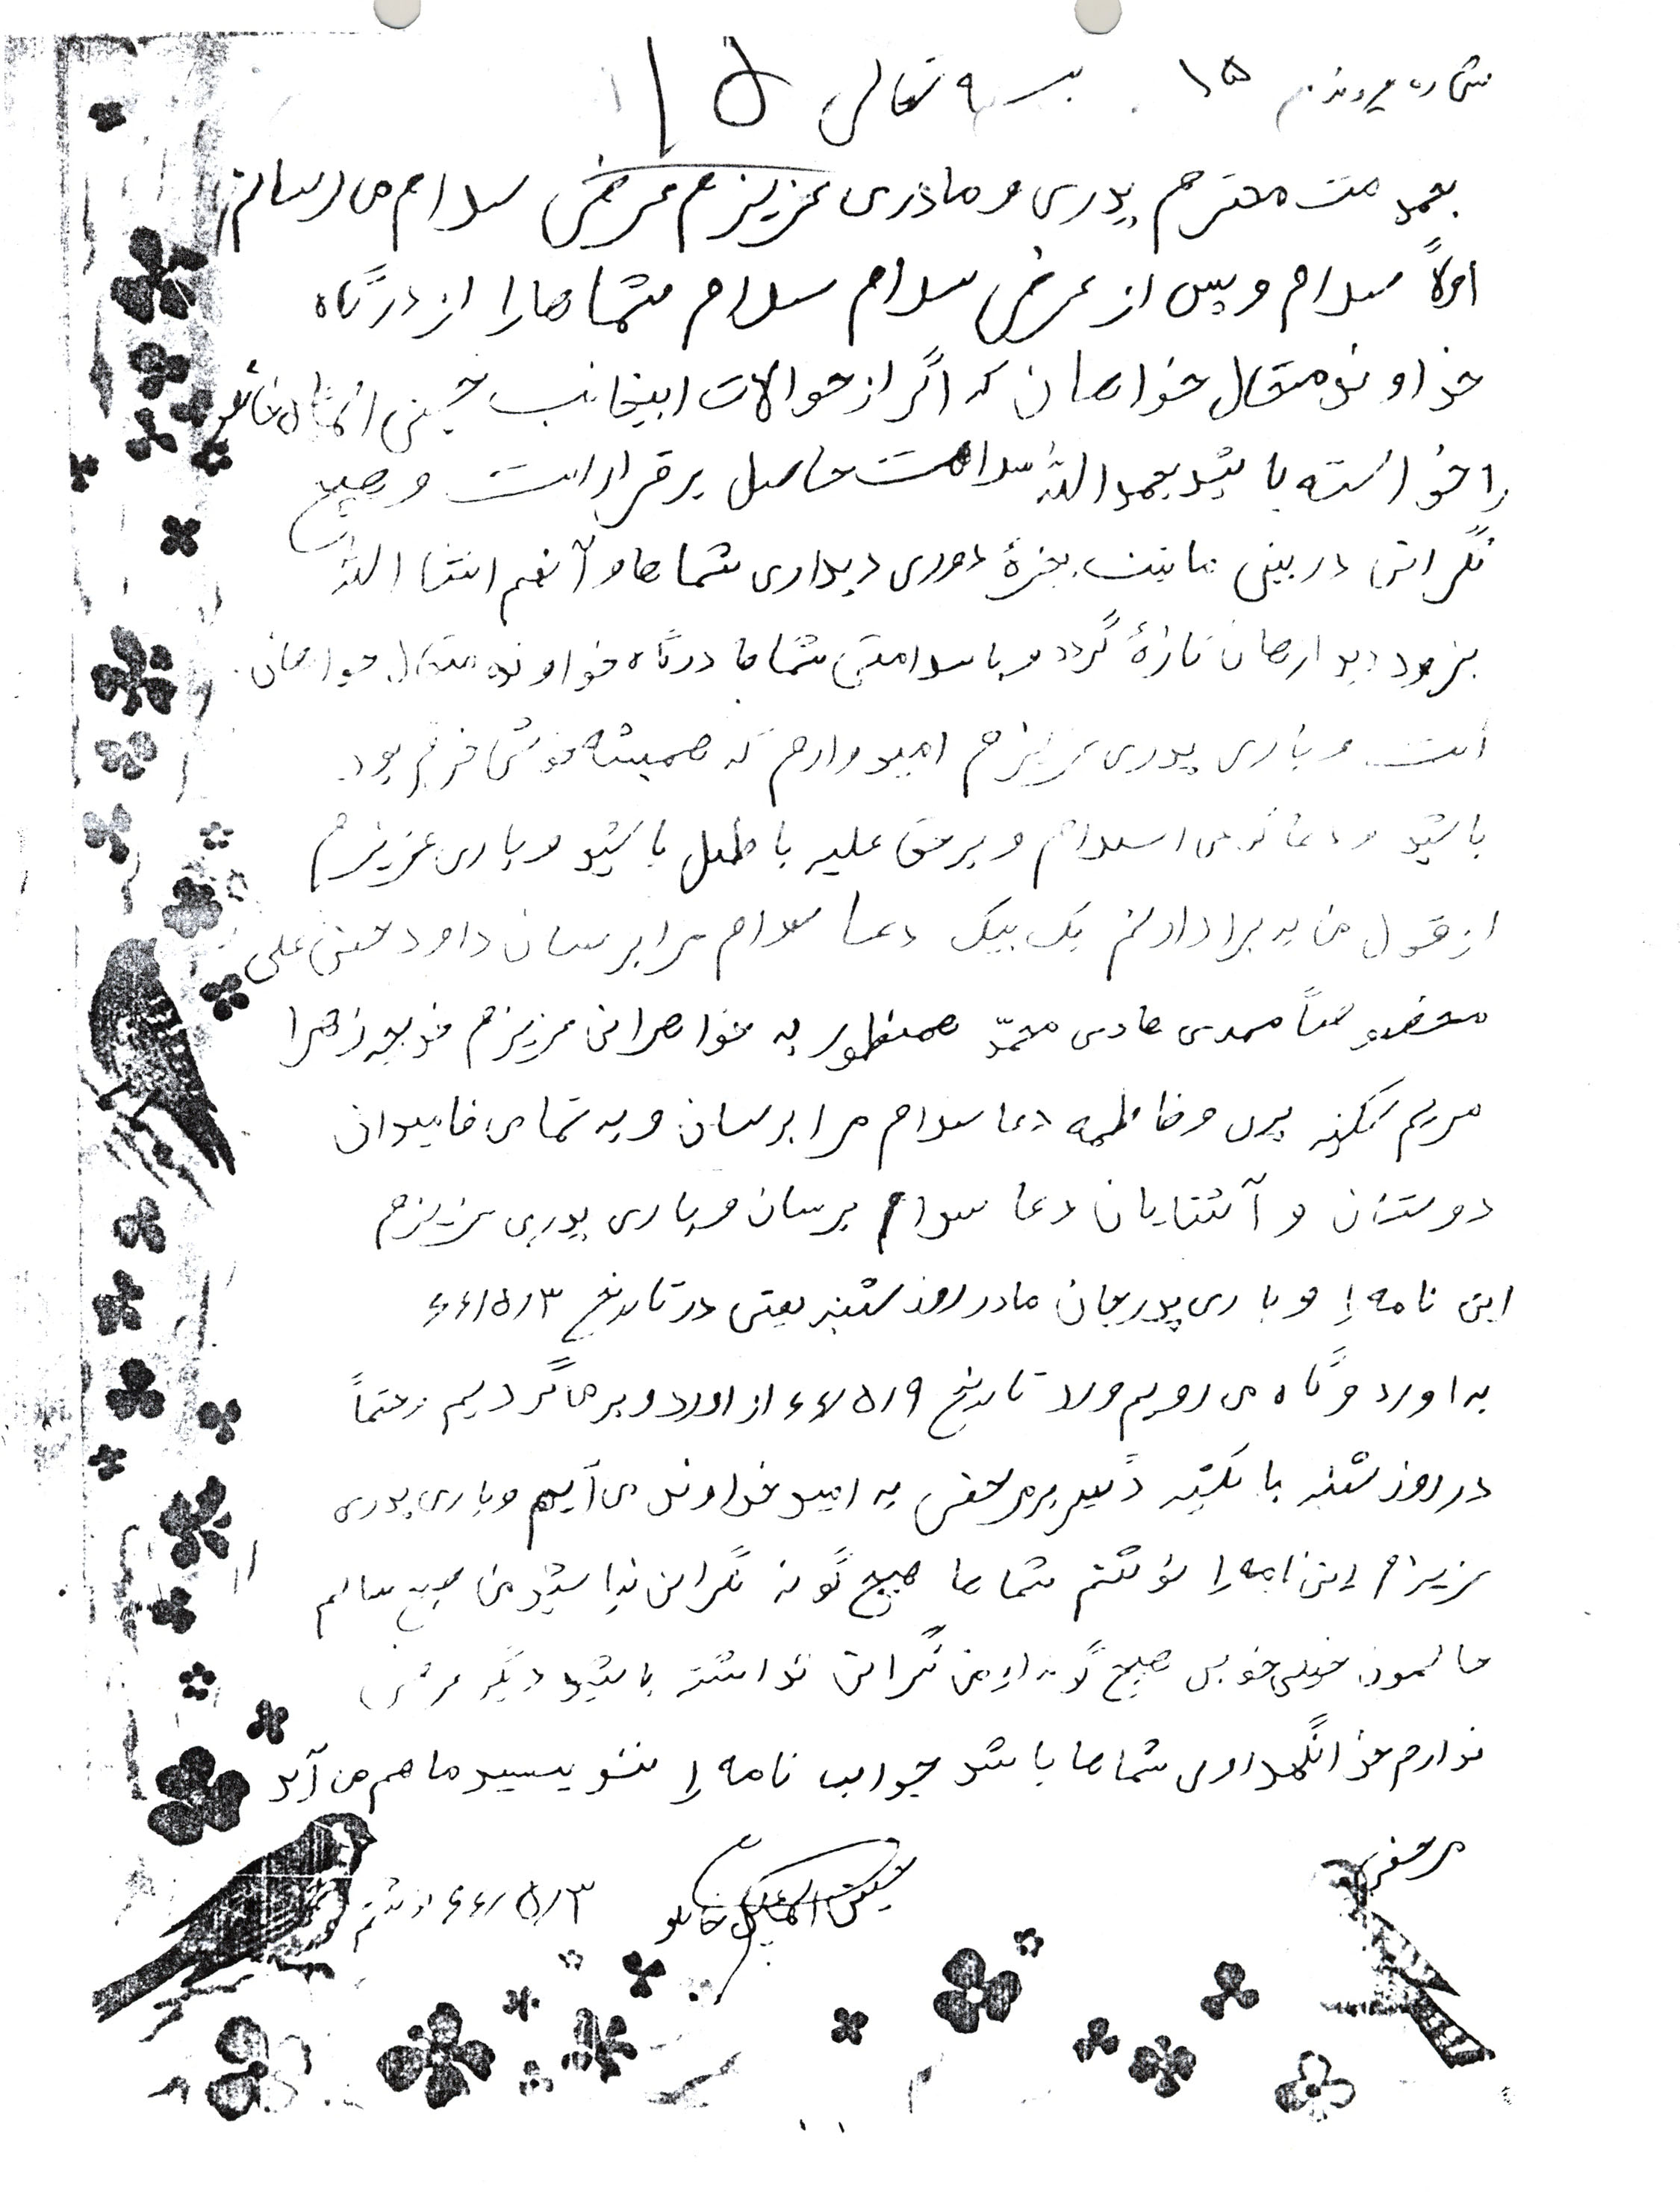 شماره پرونده 15 بسمه تعالی 15
بخدمت محترم پدری و مادری عزیزم عرض سلام می رسانم
اولاً سلام و پس از عرض سلام سلام شماها را از درگاه
خداوند متعال خواهان که اگر از حوالات اینجانب حسین
را خواسته باشید بحمدالله سلامت حاصل برقرار است و هیچ
نگرانی در بینی ما نیست بجزهٔ دوری دیداری شماها و آنهم انشا الله
بزود دیدارهان تازهٔ گردد و با سلامتی شماها درگاه خداوند متعال خواهان
است و باری پدری عزیزم امیدوارم که همیشه خوش خرم بود
باشید و دعاگوی اسلام و برحق علیه باطل باشید و باری عزیزم
از قول من به برادارنم یک بیک دعا سلام مرا برسان داود حسن علی
مخصوصاً مهدی هادی محمّد همنطور به خواهرانی عزیزم خدیجه زهرا
مریم سکینه و فاطمه دعا سلام مرا برسان و به تمامی فامیلان
دوستان و آشنایان دعا سلام برسان و باری پدری عزیزم
این نامه را و باری پدرجان ما در روز شنبه یعنی در تاریخ 66/5/3
به اوردوگاه می رویم ولا تاریخ 66/5/9 از اوردو برماگردیم حتماً
در روز شنبه با یکشنبه دیگر مرخصی به امید خداوند می آیم و باری پدری
عزیزم این نامه را نوشتم شماها هیچ گونه نگران نباشید من صحیح سالم
حالمون خیلی خوبی هیچ گونه از من نگرانی نداشته باشید دیگر عرضی
ندارم خدا نگهداری شماها باشد جواب نامه را ننویسید ما هم می آید
مرخصی
حسین اسماعیل خانلو 66/5/3